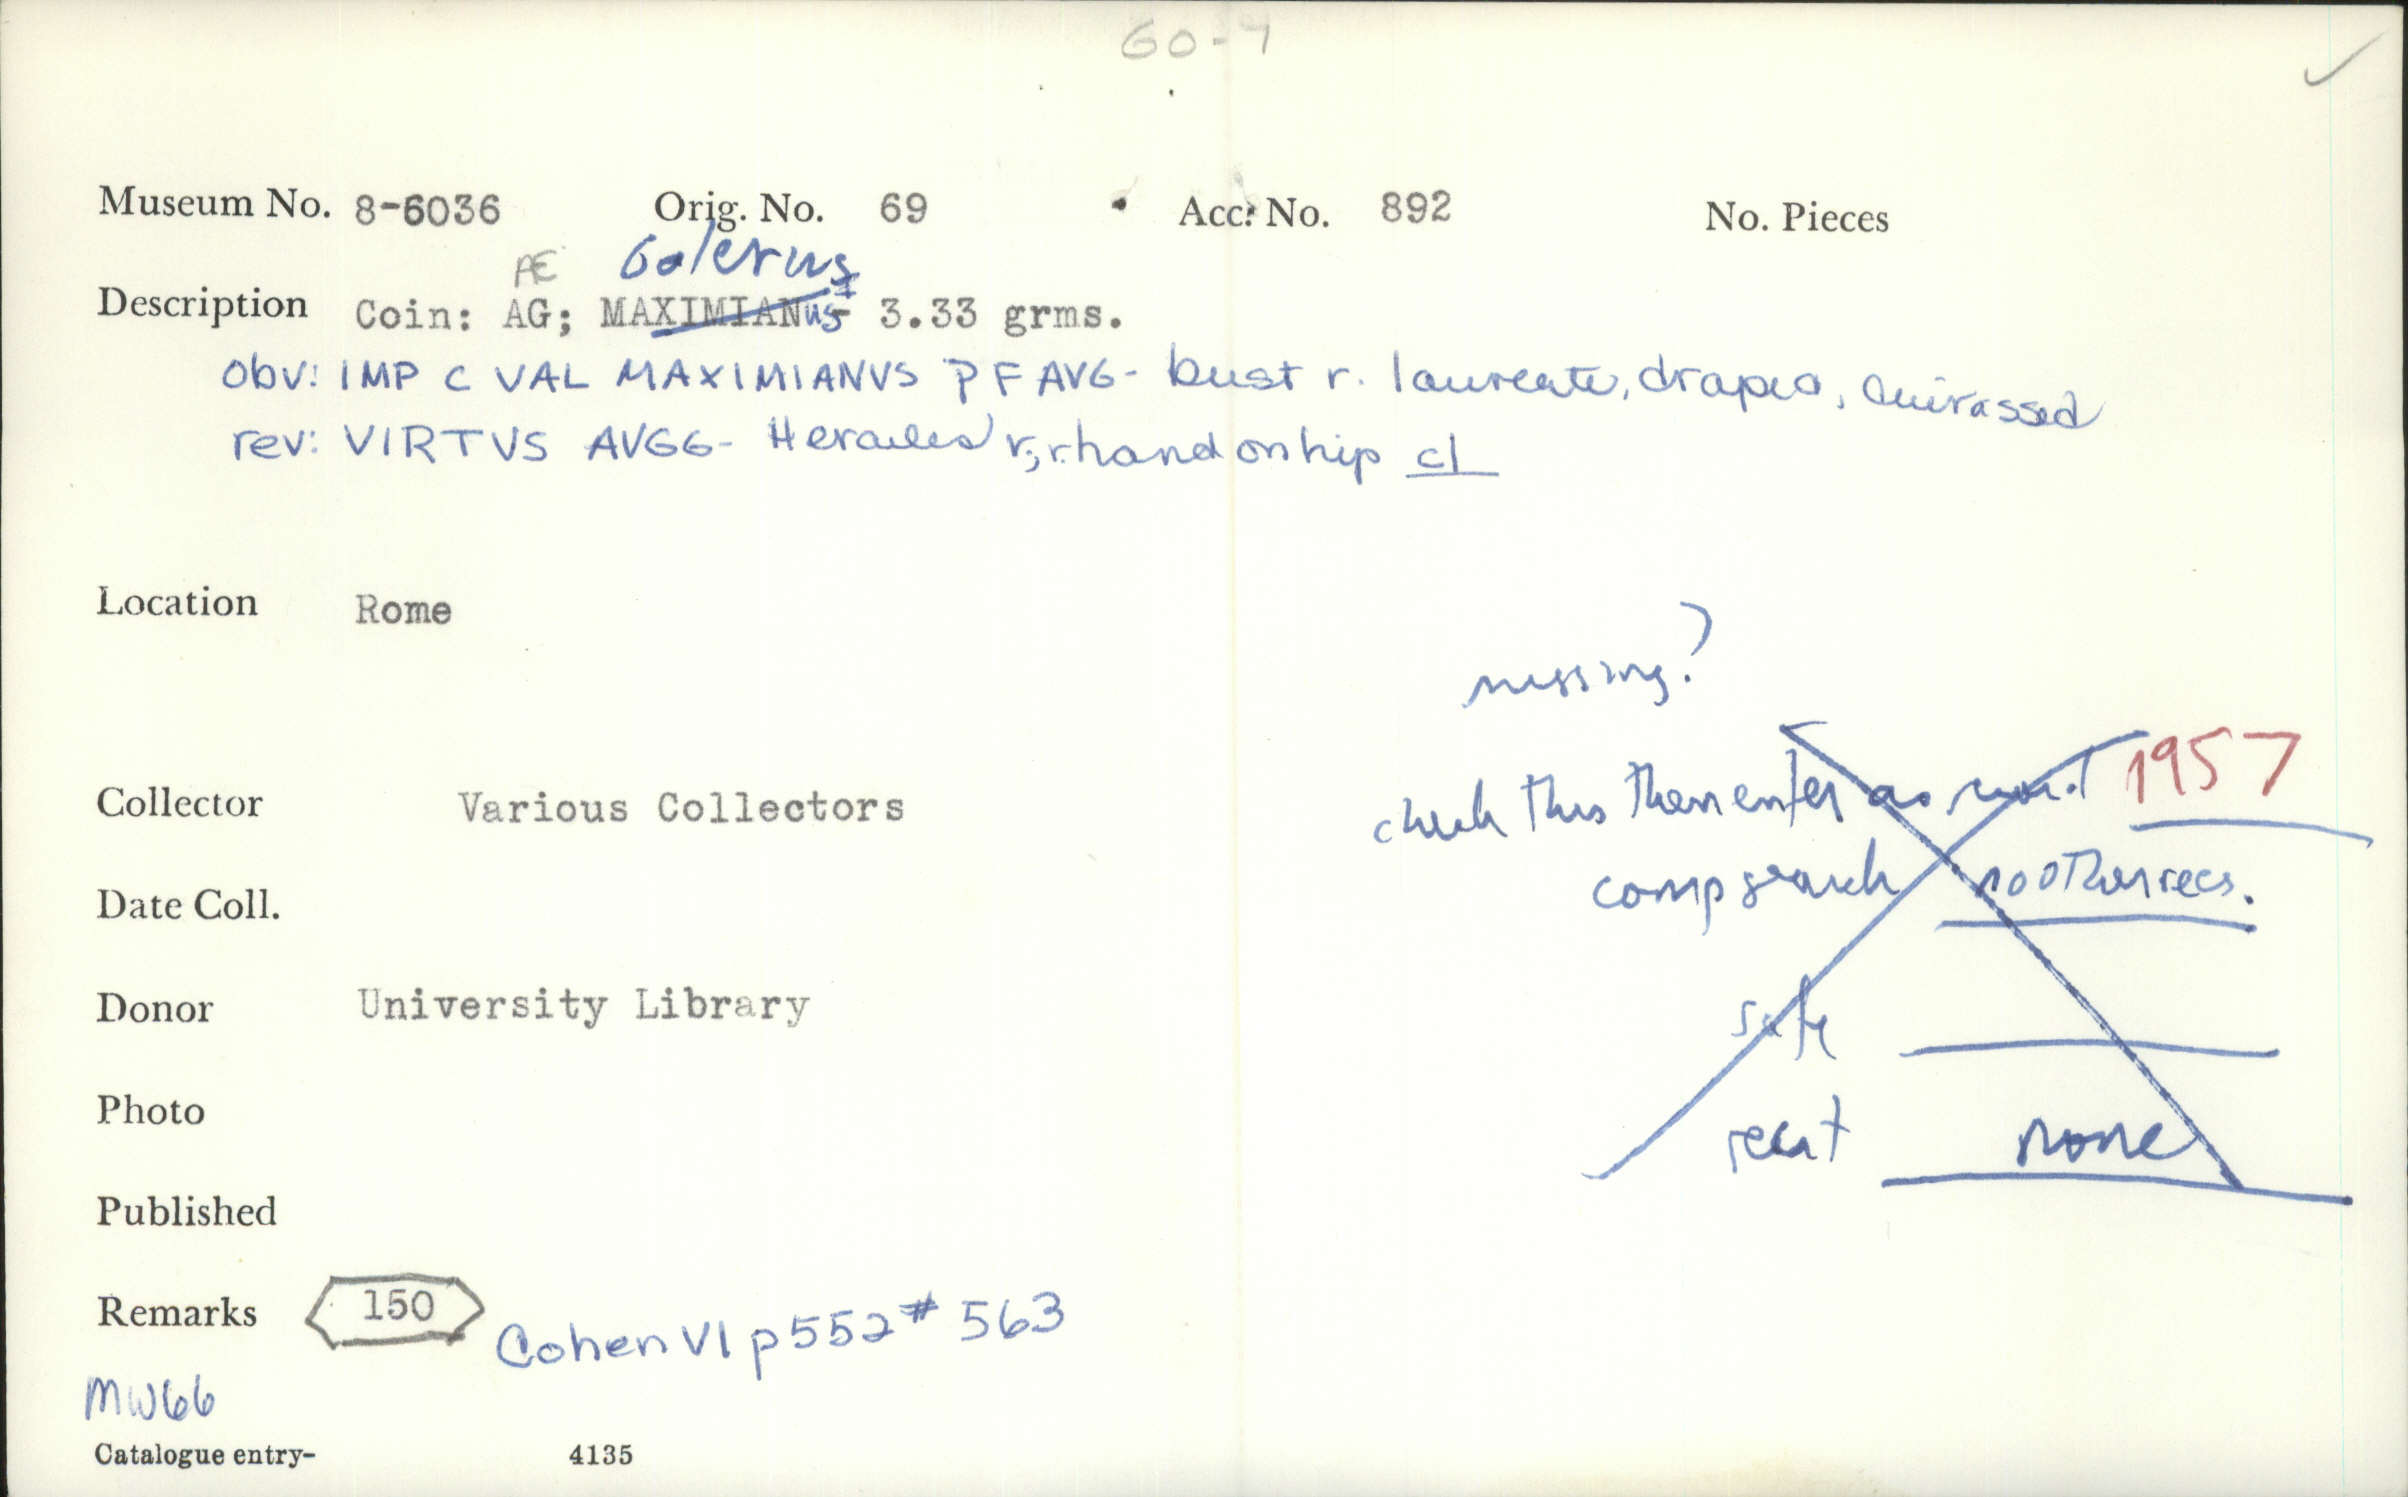 60-7
Museum No. 8-6036 Orig. No. 69 Acc. No. 892 No. Pieces
AE Galerius
Description Coin: AG; MAXIMIANus I 3.33 grms.
Obv: IMP C VAL MAXIMIANVS P F AVG- bust r. laureate, draped, cuirassed
rev: VIRTVS AVGG- Heracles r, r hand on hip cl
Location Rome
missing?
Collector Various Collectors
check this then enter as 1957
comp search no other recs.
Date Coll.
Donor University Library
safe
Photo
recat none
Published
Remarks 150 Cohen VI p552 # 563
MW66
Catalogue entry- 4135